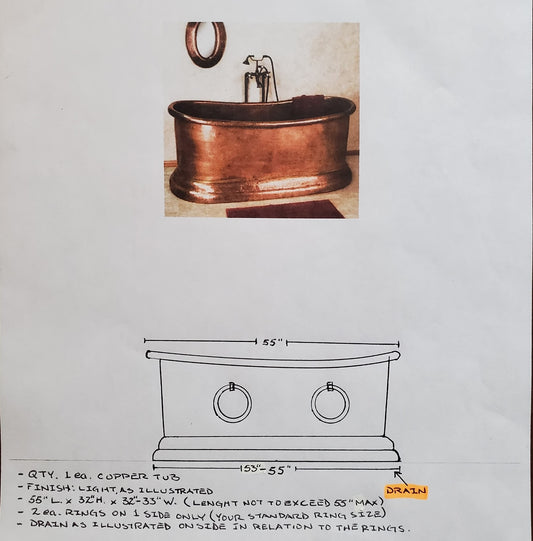 55"
53"-55"
DRAIN
- QTY. 1 ea. COPPER TUB
- FINISH: LIGHT, AS ILLUSTRATED
- 55" L. x 32"H. x 32"-33" W. (LENGHT NOT TO EXCEED 55" MAX)
- 2 ea. RINGS ON 1 SIDE ONLY (YOUR STANDARD RING SIZE)
- DRAIN AS ILLUSTRATED ON SIDE IN RELATION TO THE RINGS.